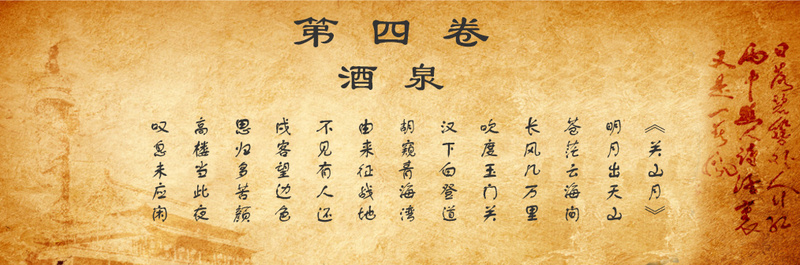 第四卷
酒泉
《关山月》
明月出天山
苍茫云海间
长风几万里
吹度玉门关
汉下白登道
胡窥青海湾
由来征战地
不见有人还
戍客望边色
思归多苦颜
高楼当此夜
叹息未应闲